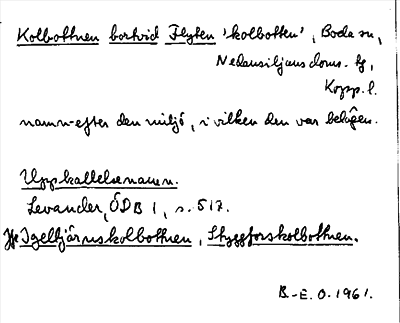 Kolbottnen bortvid Flyten 'kolbotten', Boda sn,
Nedansiljans doms. tg,
Kopp. l.
namn efter den miljö, i vilken den var belägen.
Uppkallelsenamn.
Levander, ÖDB 1, s. 517.
Jfr Igeltjärnskolbottnen, Styggforskolbottnen.
B.-E. O. 1961.